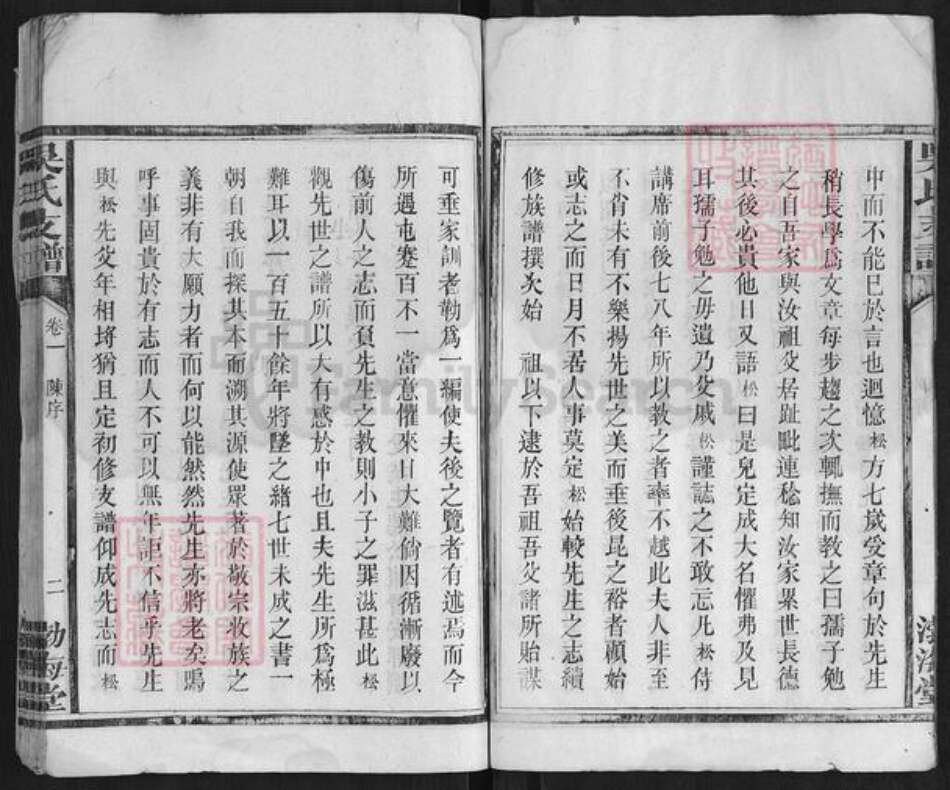 中而不能已於言也迴憶松方七歲受章句於先生
稍長學爲文章每步趨之次輒撫而教之曰孺子勉
之自吾家與汝祖父居趾毗連稔知汝家累世長德
其後必貴他日又語松曰是兒定成大名懼弗及見
耳孺子勉之毋遺乃父戚松謹誌之不敢忘凡松侍
講席前後七八年所以教之者率不越此夫人非至
不肖未有不樂揚先世之美而垂後昆之裕者顧始
或志之而日月不居人事莫定松始較先生之志續
修族譜撰次始 祖以下逮於吾祖吾父諸所貽謀
吳氏支譜
卷一 陳序
二
渤海堂
可垂家訓者勒爲一編使夫後之覽者有述焉而今
所遇屯蹇百不一當意懼來日大難倘因循漸廢以
傷前人之志而負先生之教則小子之罪滋甚此松
觀先世之譜所以大有感於中也且夫先生所爲極
難耳以一百五十餘年將墜之緒七世未成之書一
朝自我而探其本而溯其源使眾著於敬宗收族之
義非有大願力者而何以能然然先生亦將老矣嗚
呼事固貴於有志而人不可以無年詎不信乎先生
與松先父年相埒猶且定初修支譜仰成先志而松
FamilySearch